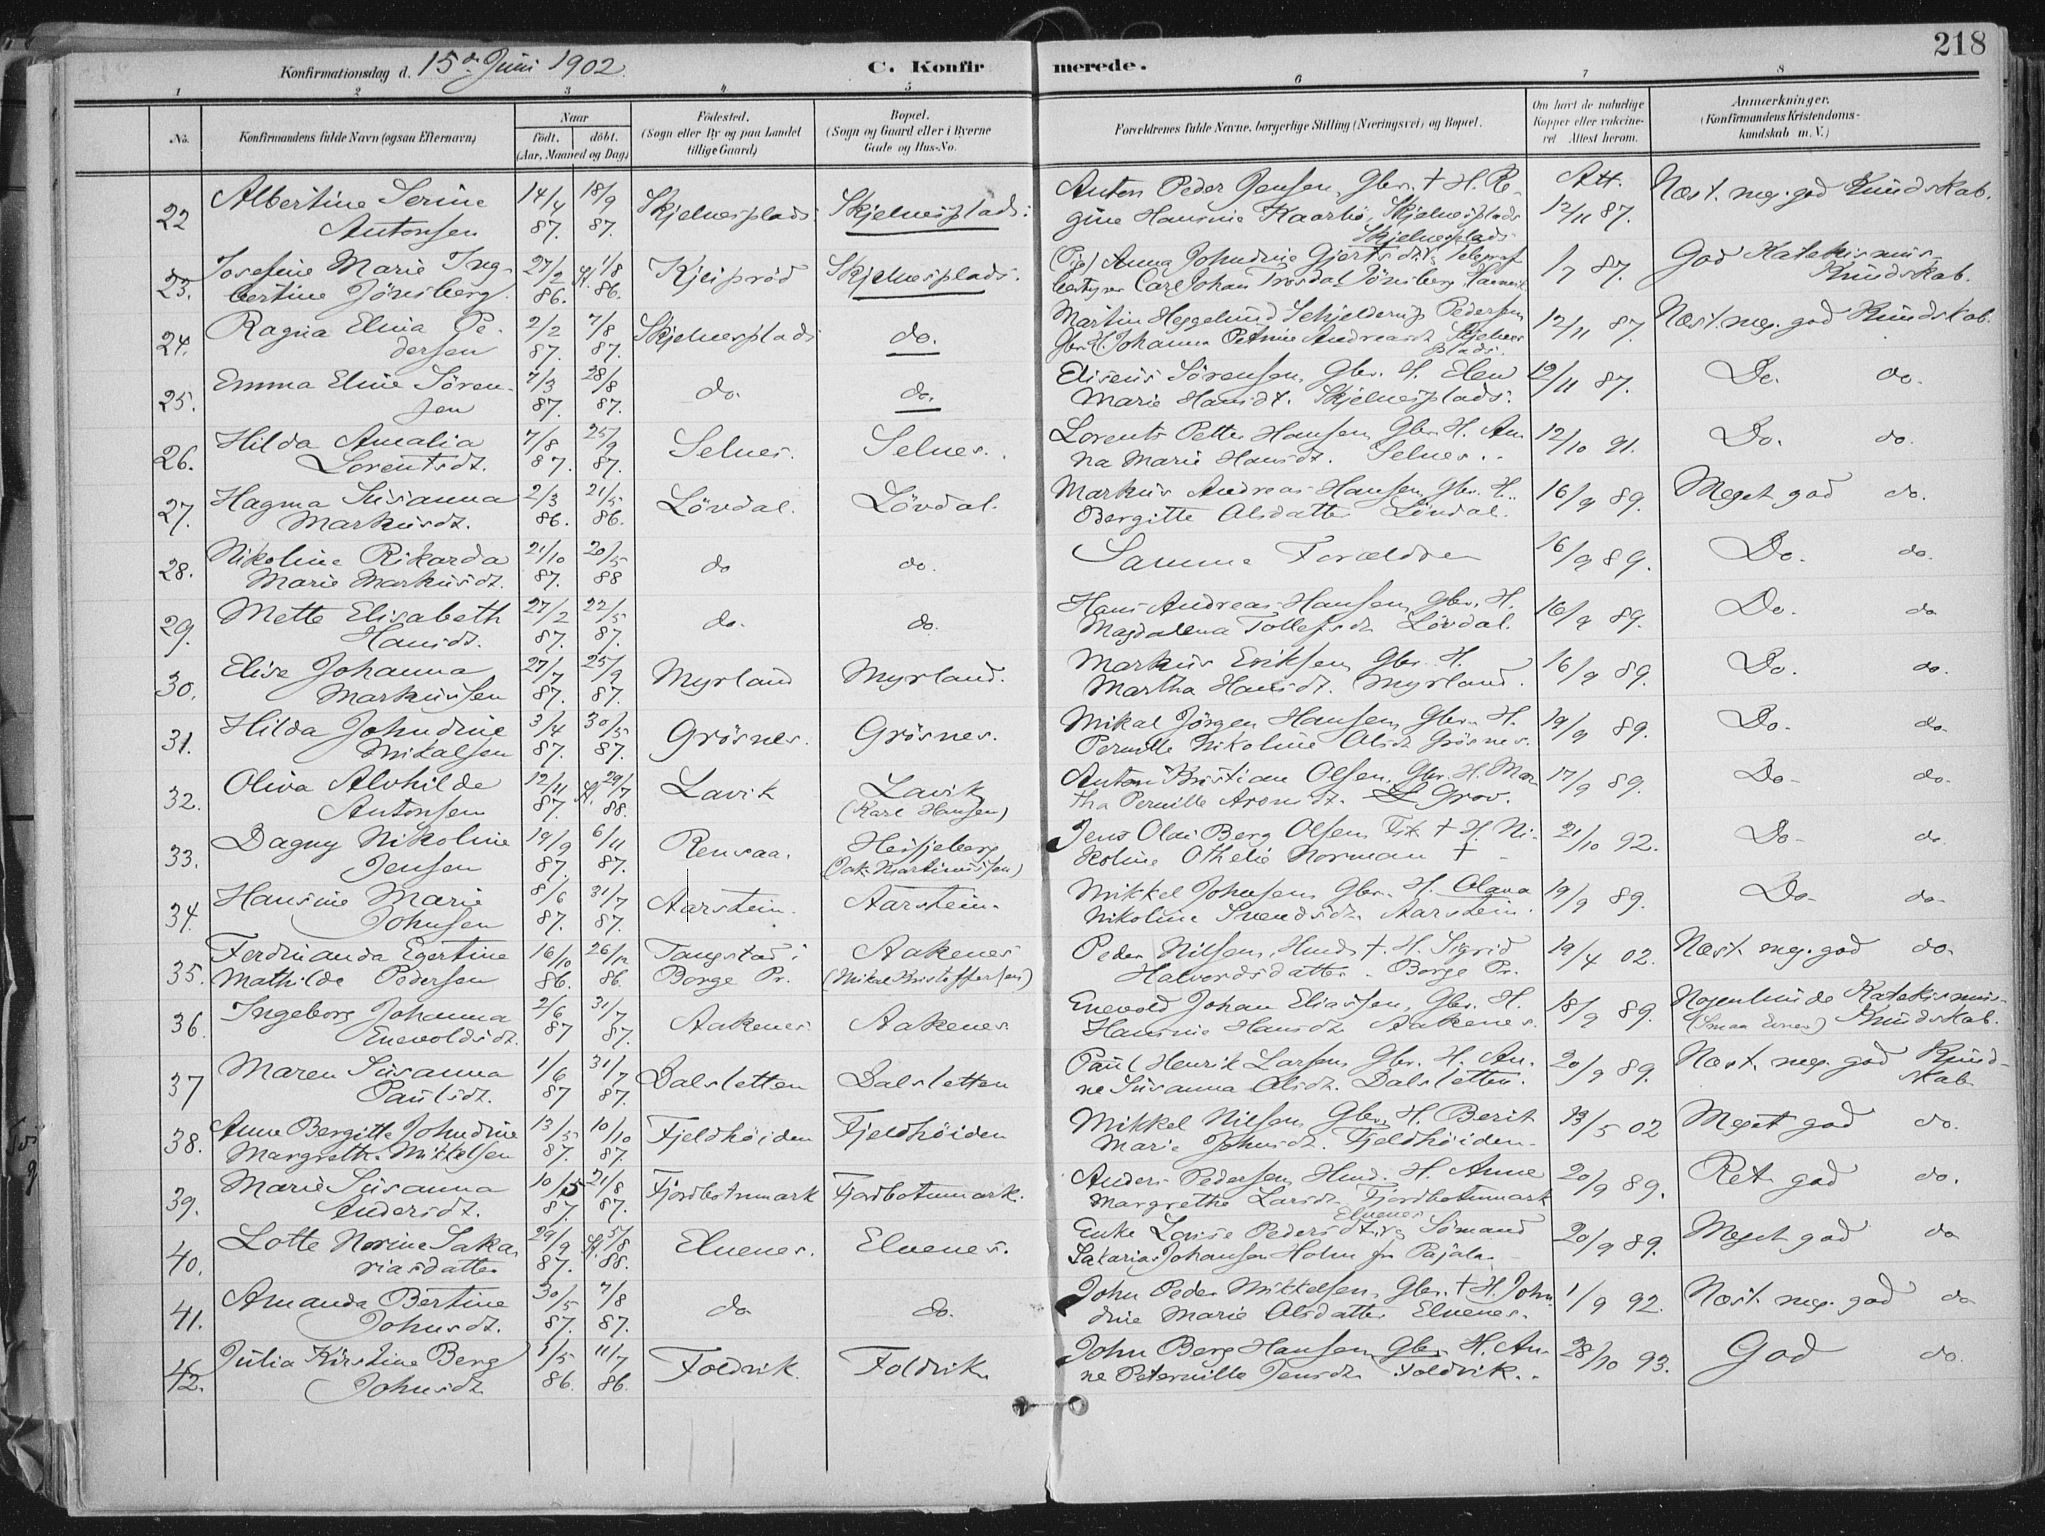 218
Konfirmationsdag d. 15de Juni 1902.
C. Konfirmerede.
1 2 3 4 5 6 7 8
No. Konfirmandens fulde Navn (ogsaa Efternavn) Naar født. døbt. (Aar, Maaned og Dag) Fødested. (Sogn eller By og paa Landet tillige Gaard) Bopæl. (Sogn og Gaard eller i Byerne Gade og Hus-No. Forældrenes fulde Navne, borgerlige Stilling (Næringsvei) og Bopæl. Om havt de naturlige Kopper eller vakcineret Attest herom. Anmærkninger. (Konfirmandens Kristendomskundskab m. V.)
22 Albertine Serine Antonsen 14/4 87. 18/9 87. Skjelnesplads Skjelnesplads. Anton Peder Jensen, Gbr. † H. Regine Hansine Kaarbø, Skjelnesplads Att. 12/11 87. Næst. meg. god Kundskab.
23. Josefine Marie Ingbertine Jönsberg. 27/2 86. 1/8 86. Skjelnesplads. Skjelnesplads Anna Johndine Gjertsdt. Telegrafbestyrer Carl Johan Jönsberg 1/7 87. God Katekismus-Kundskab.
24. Ragna Elina Pedersen 2/2 87. 7/8 87. Skjelnesplads do. Martin Heggelund Schjelderup Pedersen Gbr. H. Johanna Petrine Andreasdt. Skjelnesplads. 12/11 87. Næst. meg. god Kundskab.
25. Emma Eline Sörensen 7/3 87. 28/8 87. do. do. Eliseus Sörensen, Gbr. H. Elen Marie Hansdt. Skjelnesplads. 12/11 87. Do. do.
26. Hilda Amalia Lorentsdt. 7/8 87. 25/9 87. Selnes. Selnes. Lorents Petter Hansen, Gbr. H. Anna Marie Hansdt. Selnes. 12/10 91. Do. do.
27. Hagma Susanna Markusdt. 2/3 86. 21/5 86. Lövdal. Lövdal. Markus Andreas Hansen, Gbr. H. Bergitte Olsdatter Lövdal. 16/9 89. Meget god do.
28. Nikoline Rikarda Marie Markusdt. 21/10 87. 20/5 88 do do. Samme Forældre 16/9 89. Do. do.
29. Mette Elisabeth Hansdt. 27/2 87. 22/5 87. do. do. Hans Andreas Hansen, Gbr. H. Magdalena Tollefsdt. Lövdal. 16/9 89. Do. do
30. Elise Johanna Markussen 27/7 87. 25/9 87. Myrland Myrland. Markus Eriksen, Gbr. H. Martha Hansdt. Myrland. 16/9 89. Do. do.
31. Hilda Johndine Mikalsen 3/4 87. 30/5 87. Grösnes. Grösnes. Mikal Jörgen Hansen, Gbr. H. Pernille Nikoline Olsdt. Grösnes. 19/9 89. Do. do.
32. Oliva Alvhilde Antonsen 12/11 87. 29/7 88. Lavik Lavik (Karl Hansen) Anton Kristian Olsen, Gbr. H. Martha Pernille Aronsdt. Grov. 17/9 89. Do. do.
33. Dagny Nikoline Jensen 19/9 87. 6/11 87. Rensaa. (Jak. Martinussen) Jens Olai Berg Olsen, † H. Nikoline Othelie Norman † 21/10 92. Do. do.
34. Hansine Marie Johnsen 8/6 87. 31/7 87. Aarstein. Aarstein. Mikkel Johnsen, Gbr. H. Olava Nikoline Svendsdt. Aarstein. 19/9 89. Do. do.
35. Ferdinanda Egertine Mathilde Pedersen 16/10 86. 26/12 86. Tangstad i Borge Pr. Aakenes (Mikal Kristoffersen) Peder Nilsen, Hmd. † H. Sigrid Halvordsdatter. Borge Pr. 19/4 02. Næst. meg. god do.
36. Ingeborg Johanna Enevoldsdt. 2/6 87 31/7 87. Aakenes. Aakenes. Enevold Johan Eliassen, Gbr. H. Hansine Hansdt. Aakenes. 18/9 89. Nogenlunde Katekismus- (Smaa Evner) Kundskab.
37 Maren Susanna Paulsdt. 1/6 87 31/7 87. Dalsletten Dalsletten Paul Henrik Larsen, Gbr. H. Anne Susanna Olsdt. Dalsletten. 20/9 89. Næst. meg. god Kundskab
38. Anne Bergitte Johndine Margrethe Mikkelsen 13/5 87. 10/10 87 Fjeldhöiden Fjeldhöiden Mikkel Nilsen, Gbr. H. Berit Marie Johnsdt. Fjeldhöiden. 13/5 02 Meget god do.
39. Marie Susanna Andersdt. 10/5 87. 21/8 87. Fjordbotnmark Fjordbotnmark. Anders Pedersen, Hmd. H. Anne Margrethe Larsdt. Fjordbotnmark 20/9 89. Ret god do.
40. Lotte Norine Sakariasdatter 29/9 87. 5/8 88. Elvenes. Elvenes. Enke Lovise Pedersdt. Elvenes Sömand Sakarias Johansen Holm fra Pajala. 20/9 89. Meget god do
41. Amanda Bertine Johnsdt. 30/5 87. 7/8 87. do do. John Peder Mikkelsen, Gbr. † H. Johndine Marie Olsdatter Elvenes. 1/9 92. Næst. meg. god do
42. Julia Kirstine Berg Johnsdt. 1/5 86. 11/7 86. Foldvik. Foldvik. John Berg Hansen, Gbr. H. Anne Peternille Jensdt. Foldvik. 28/10 93. God do.